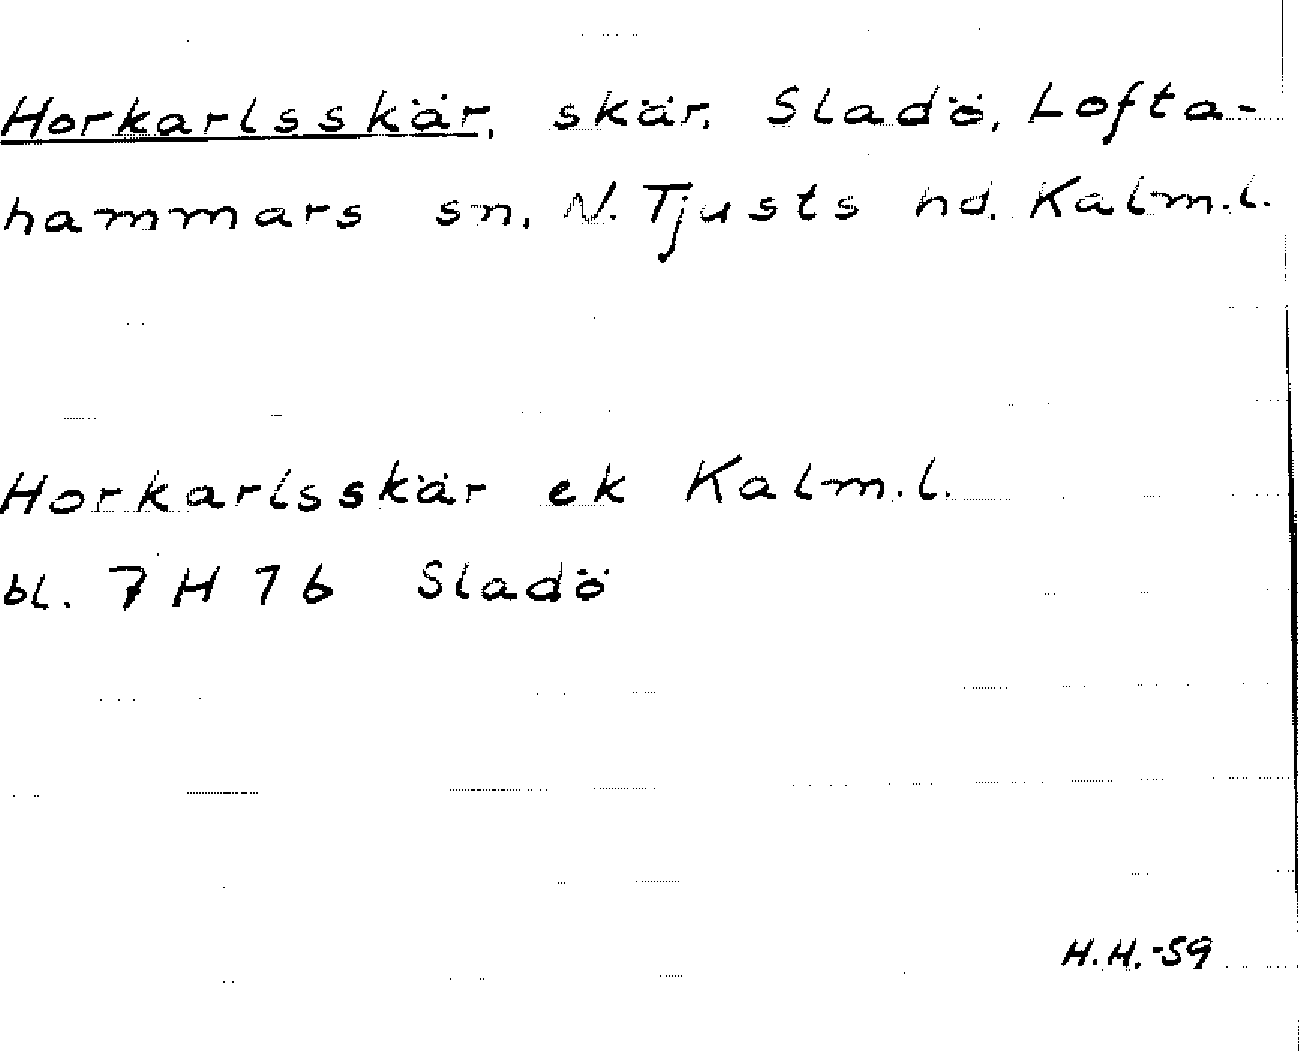 Horkarlsskär, skär, Sladö, Lofta-
hammars sn, N. Tjusts hd. Kalm.l.
Horkarlsskär ek Kalm.l.
bl. 7 H 7 b Sladö
H.H.-59